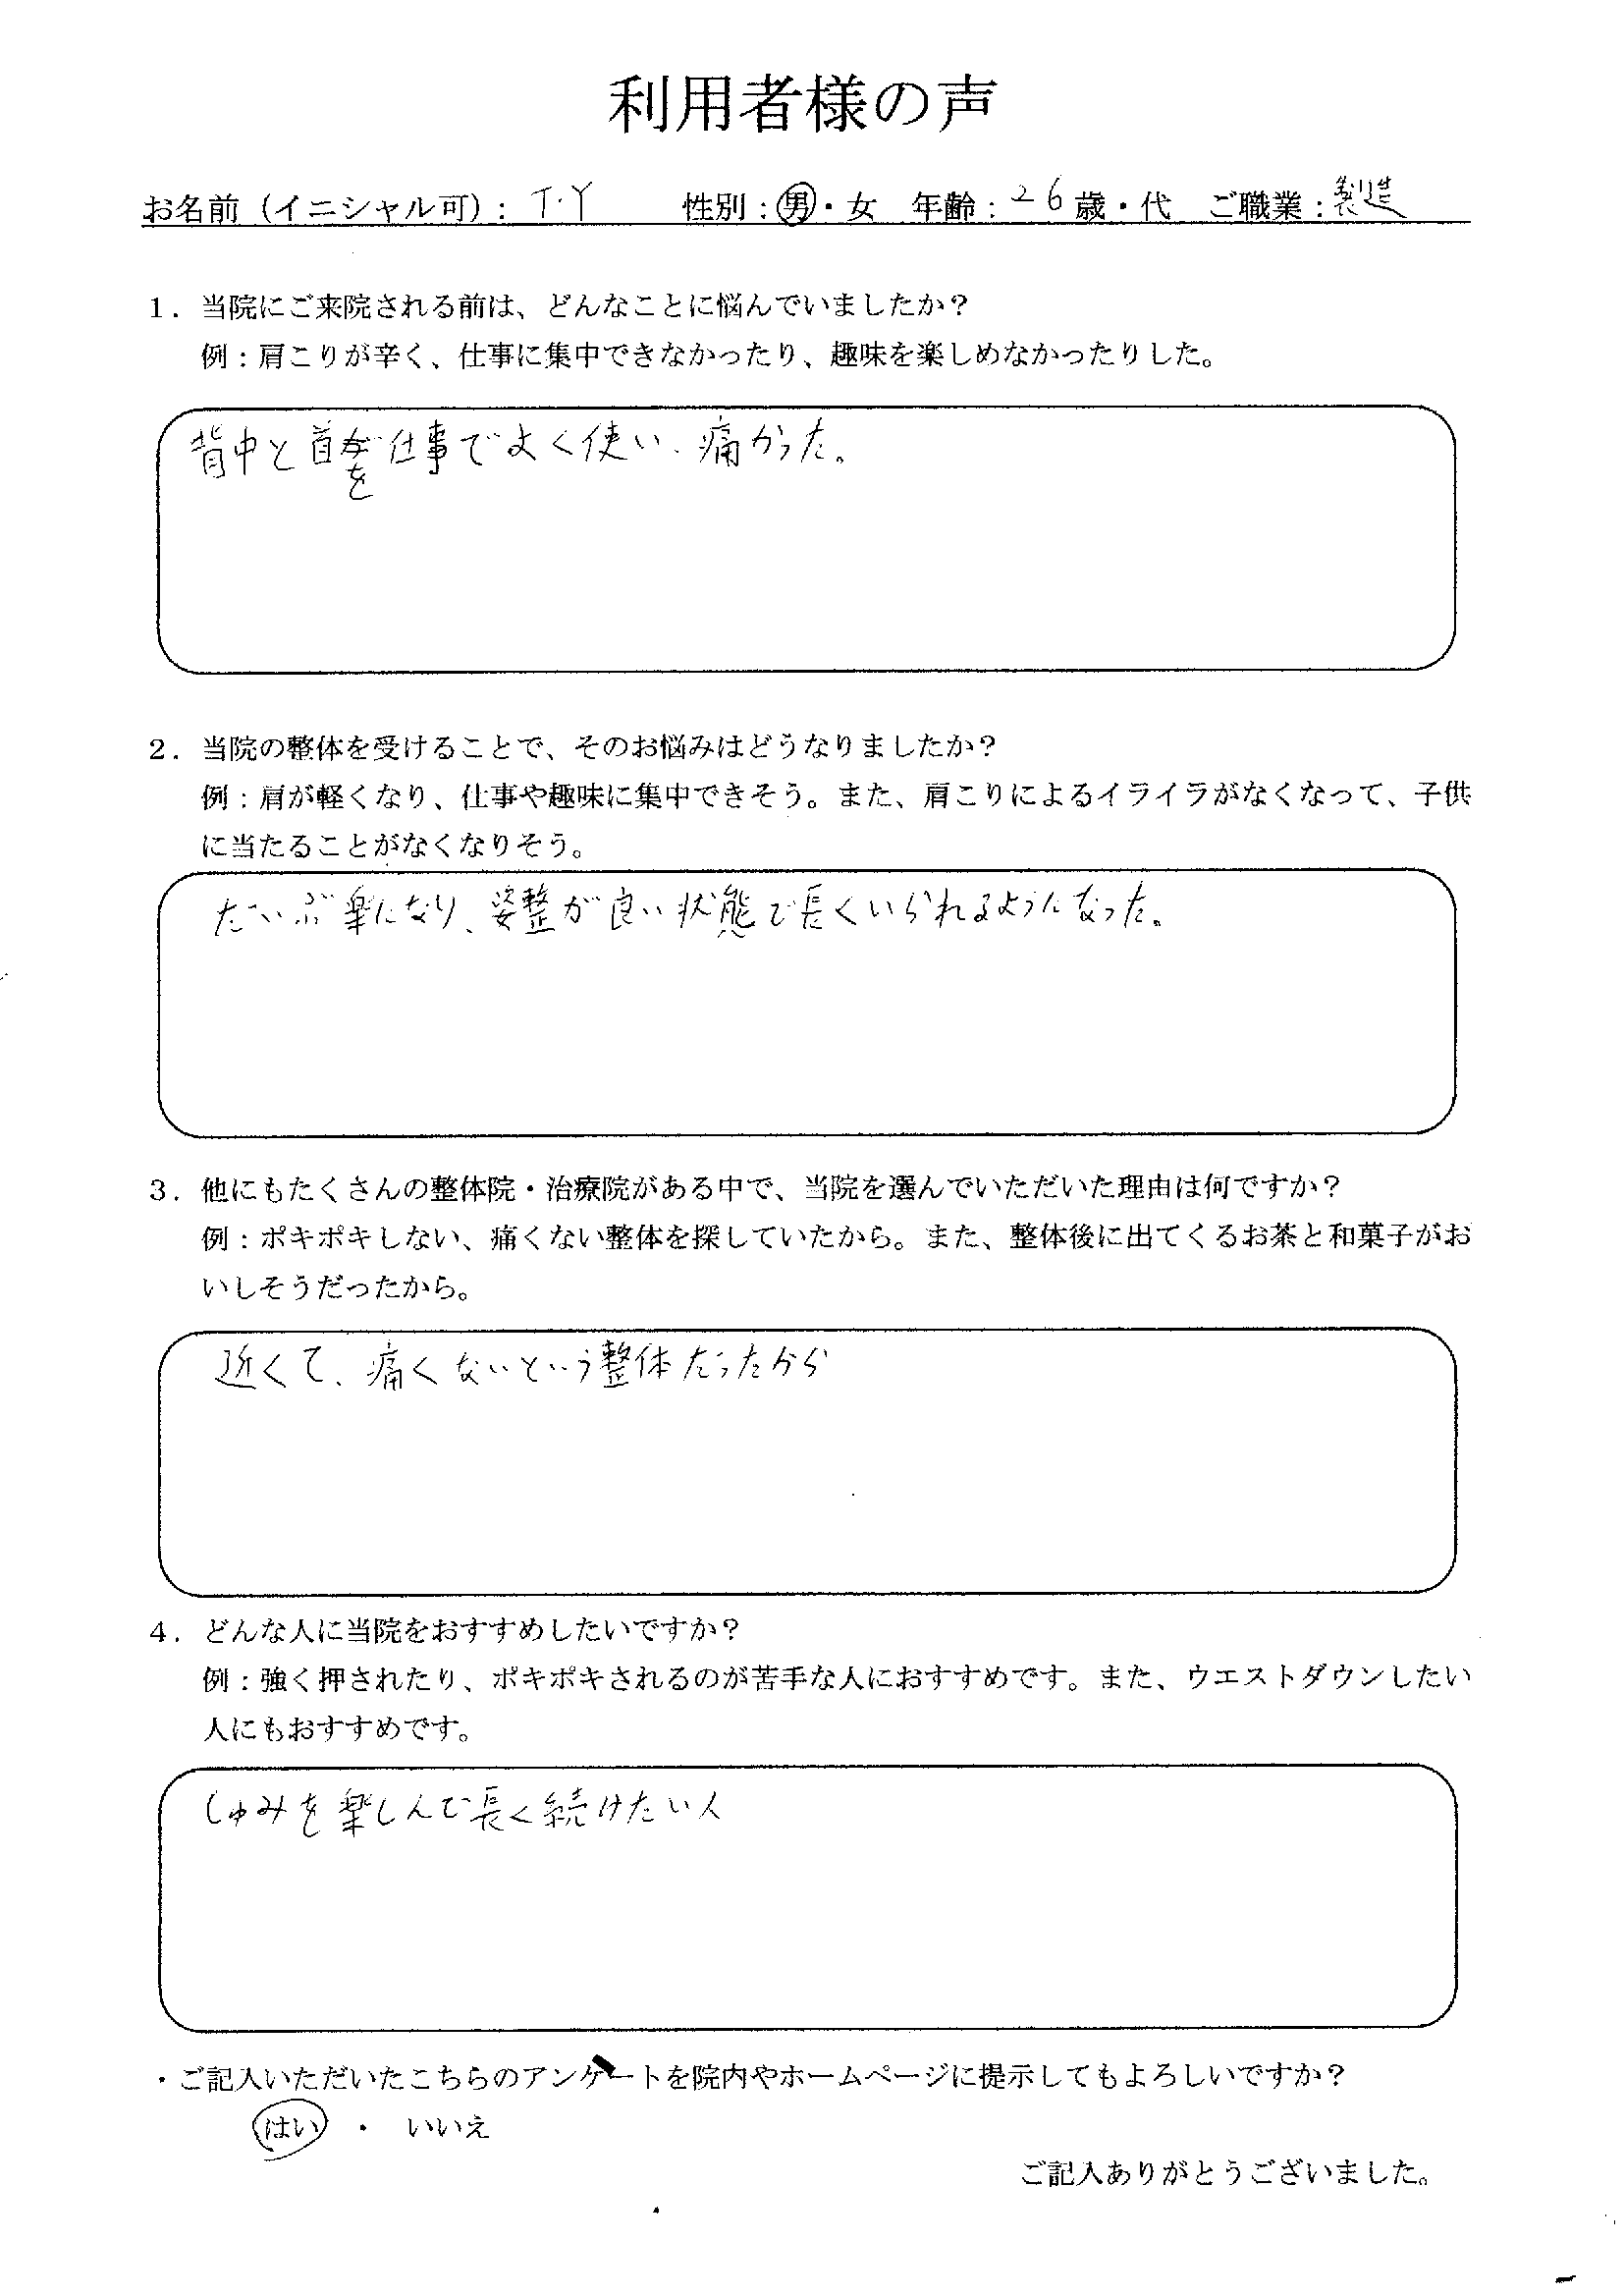 利用者様の声
お名前（イニシャル可）：T.Y　性別：男・女　年齢：26歳・代　ご職業：製造
１．当院にご来院される前は、どんなことに悩んでいましたか？
例：肩こりが辛く、仕事に集中できなかったり、趣味を楽しめなかったりした。
背中と首を仕事でよく使い、痛かった。
２．当院の整体を受けることで、そのお悩みはどうなりましたか？
例：肩が軽くなり、仕事や趣味に集中できそう。また、肩こりによるイライラがなくなって、子供
に当たることがなくなりそう。
だいぶ楽になり、姿整が良い状態で長くいられるようになった。
３．他にもたくさんの整体院・治療院がある中で、当院を選んでいただいた理由は何ですか？
例：ポキポキしない、痛くない整体を探していたから。また、整体後に出てくるお茶と和菓子がお
いしそうだったから。
近くて、痛くないという整体だったから
４．どんな人に当院をおすすめしたいですか？
例：強く押されたり、ポキポキされるのが苦手な人におすすめです。また、ウエストダウンしたい
人にもおすすめです。
しゅみを楽しんで長く続けたい人
・ご記入いただいたこちらのアンケートを院内やホームページに提示してもよろしいですか？
はい　・　いいえ
ご記入ありがとうございました。